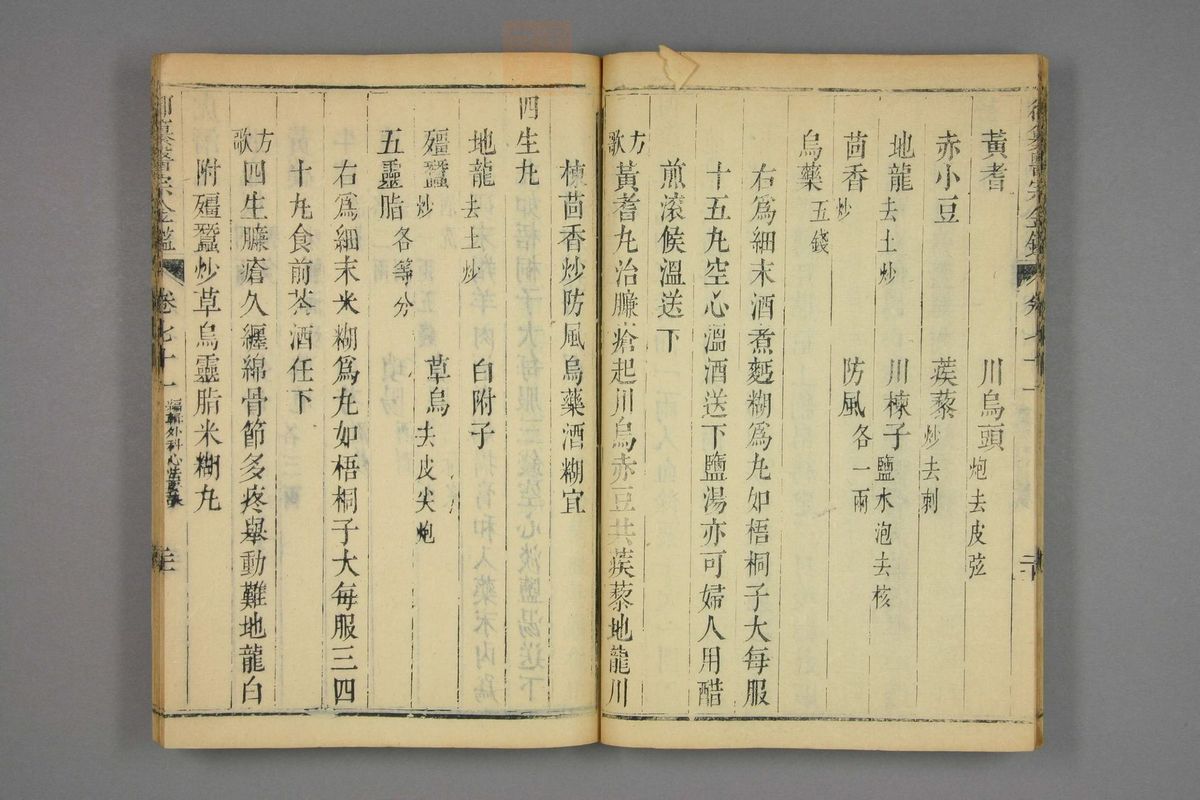 黃耆　川烏頭炮去皮弦
赤小豆　蒺藜炒去刺
地龍去土炒　川楝子鹽水泡去核
茴香炒　防風各一兩
烏藥五錢
右為細末酒煮麪糊為丸如梧桐子大每服
十五丸空心溫酒送下鹽湯亦可婦人用醋
煎滾候溫送下
方歌黃耆丸治臁瘡起川烏赤豆共蒺藜地龍川
楝茴香炒防風烏藥酒糊宜
四生丸
地龍去土炒　白附子
殭蠶炒　草烏去皮尖炮
五靈脂各等分
右為細末米糊為丸如梧桐子大每服三四
十丸食前茶酒任下
方歌四生臁瘡久纏綿骨節多疼舉動難地龍白
附殭蠶炒草烏靈脂米糊丸
御纂醫宗金鑑　卷七十一　編輯外科心法要訣